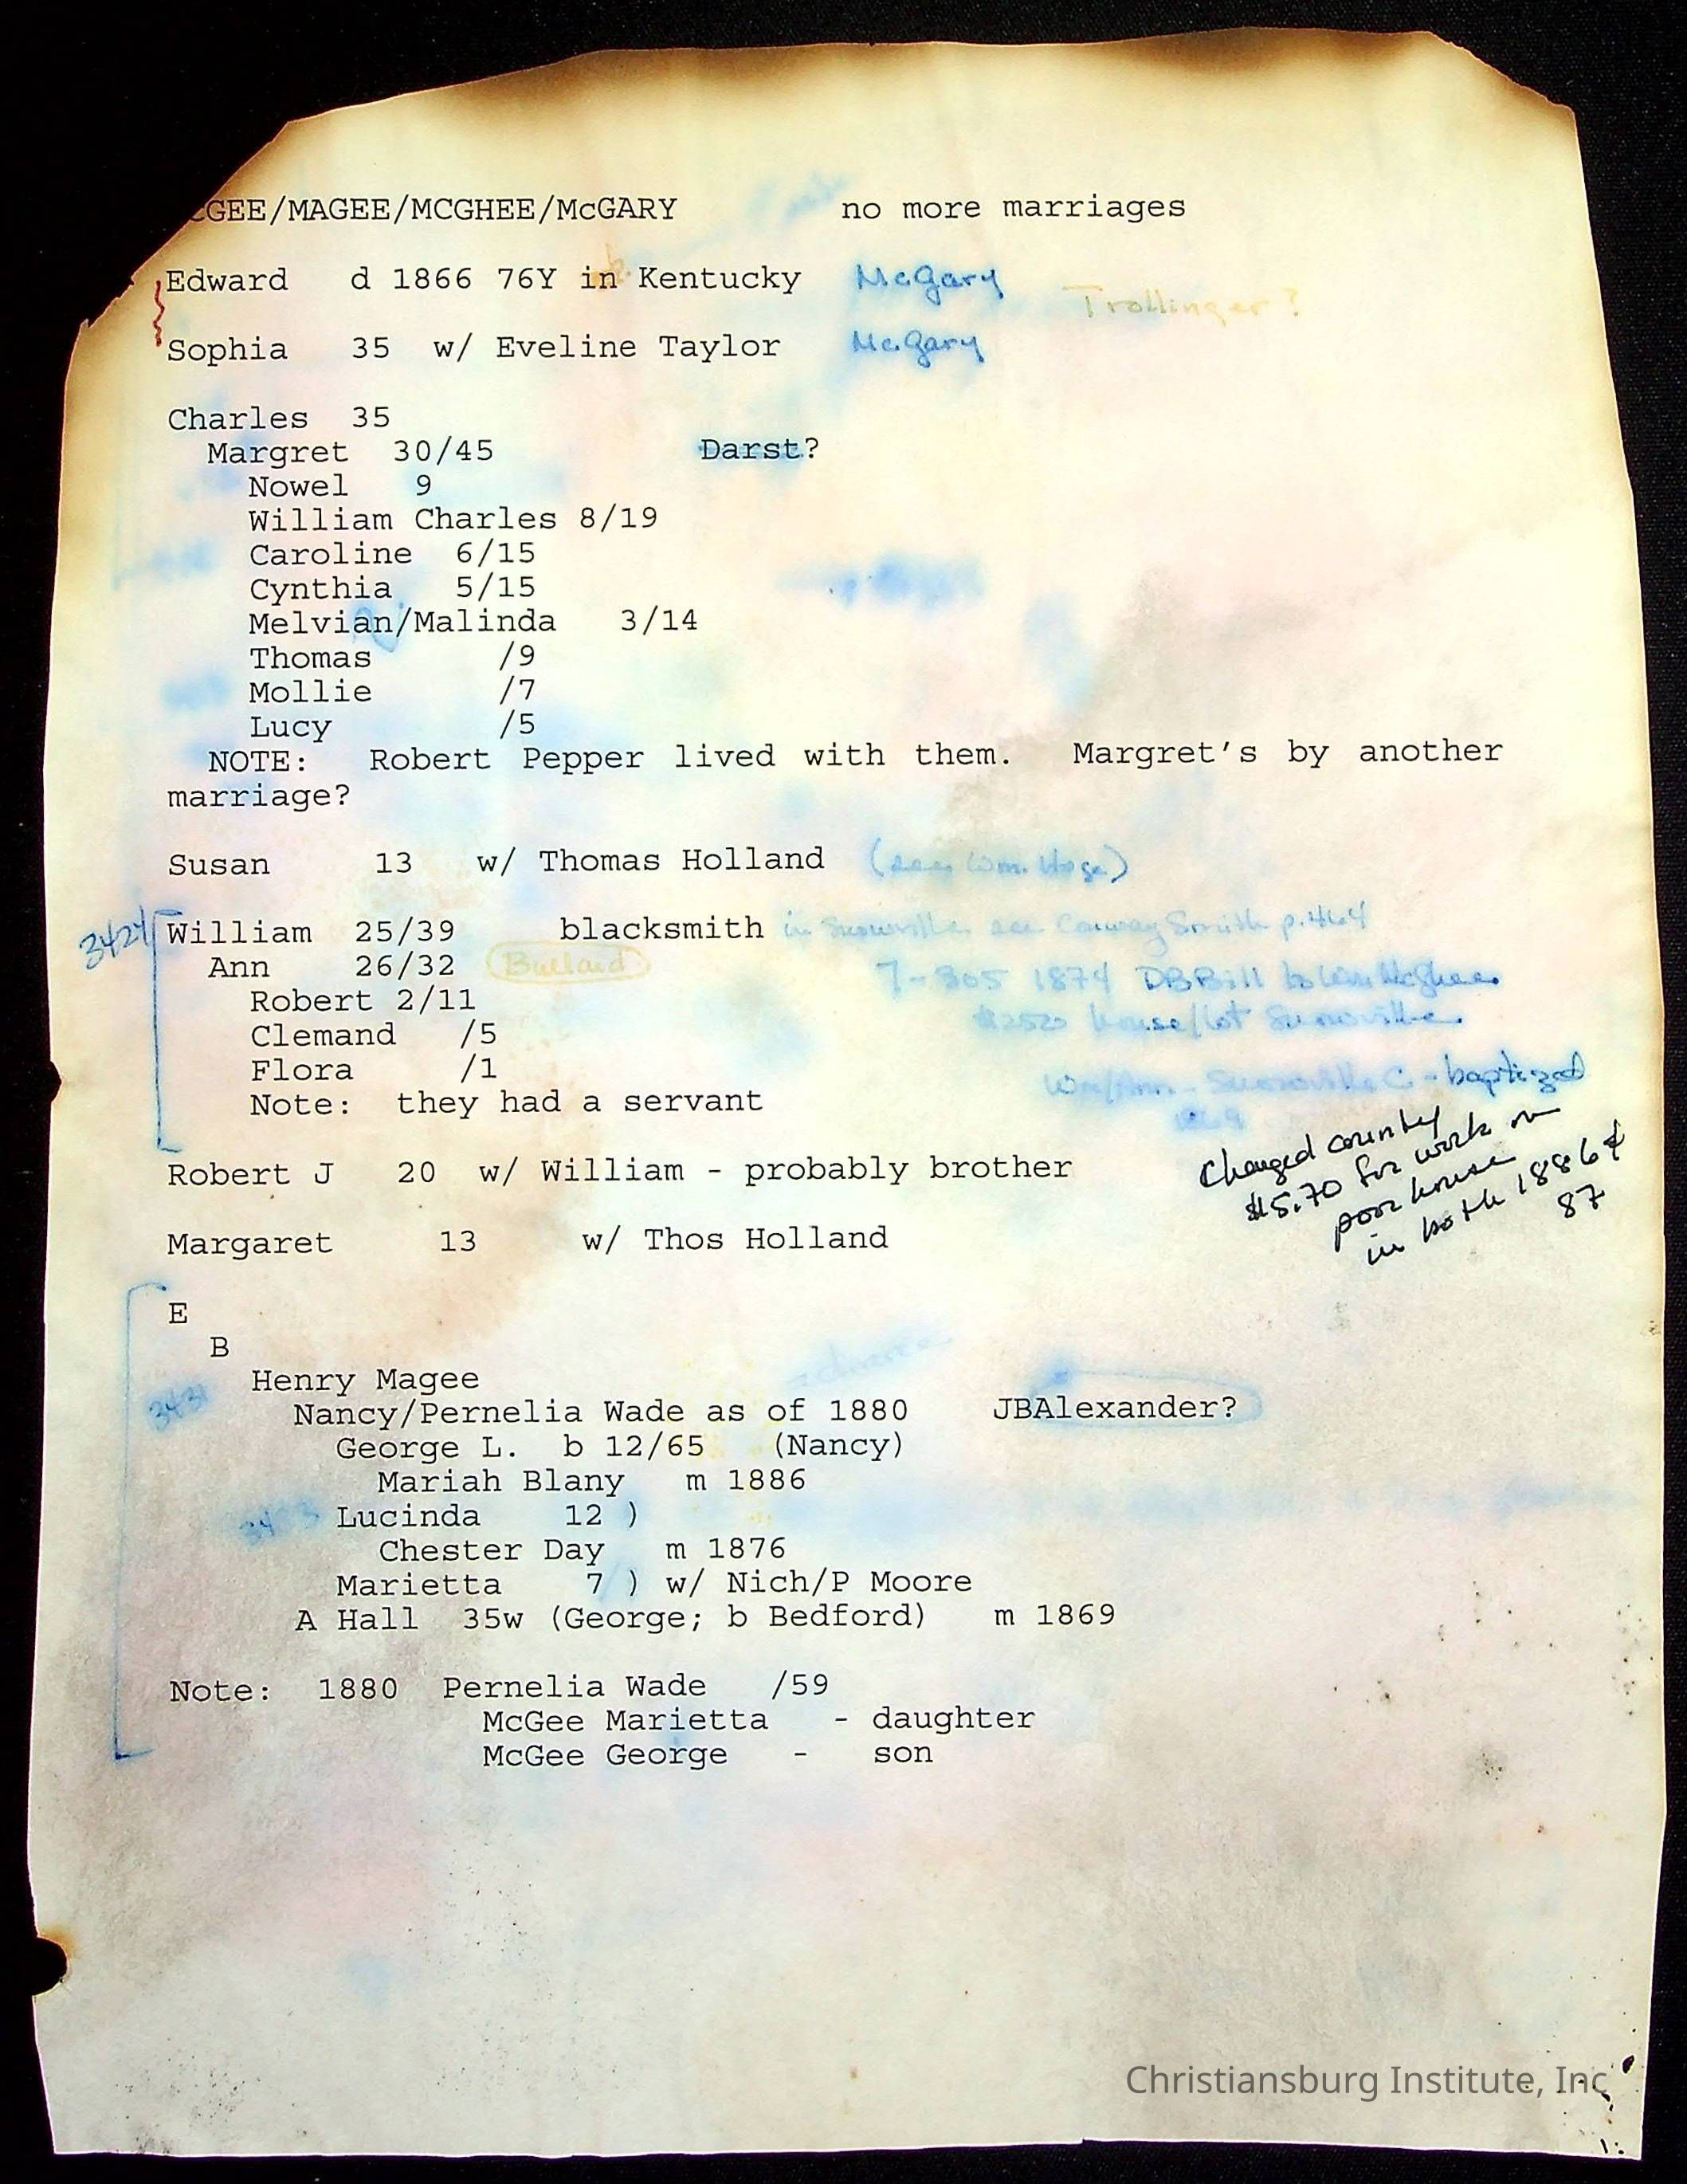 CGEE/MAGEE/MCGHEE/McGARY no more marriages
Edward d 1866 76Y in Kentucky McGary
Trollinger?
Sophia 35 w/ Eveline Taylor McGary
Charles 35
Margret 30/45 Darst?
Nowel 9
William Charles 8/19
Caroline 6/15
Cynthia 5/15
Melvian/Malinda 3/14
Thomas /9
Mollie /7
Lucy /5
NOTE: Robert Pepper lived with them. Margret's by another
marriage?
Susan 13 w/ Thomas Holland (see Wm. Hoge)
William 25/39 blacksmith in Snowville see Conway Smith p.464
Ann 26/32 Bullard
7-305 1874 DBBill to Wm McGhee
Robert 2/11
house/lot Snowville
Clemand /5
Flora /1
Wm/Ann - Snowville C. - baptized
Note: they had a servant
Charged county
$5.70 for work on
poor house
in both 1886 &
87
Robert J 20 w/ William - probably brother
Margaret 13 w/ Thos Holland
E
B
Henry Magee
Nancy/Pernelia Wade as of 1880 JBAlexander?
George L. b 12/65 (Nancy)
Mariah Blany m 1886
Lucinda 12 )
Chester Day m 1876
Marietta 7 ) w/ Nich/P Moore
A Hall 35w (George; b Bedford) m 1869
Note: 1880 Pernelia Wade /59
McGee Marietta - daughter
McGee George - son
Christiansburg Institute, Inc